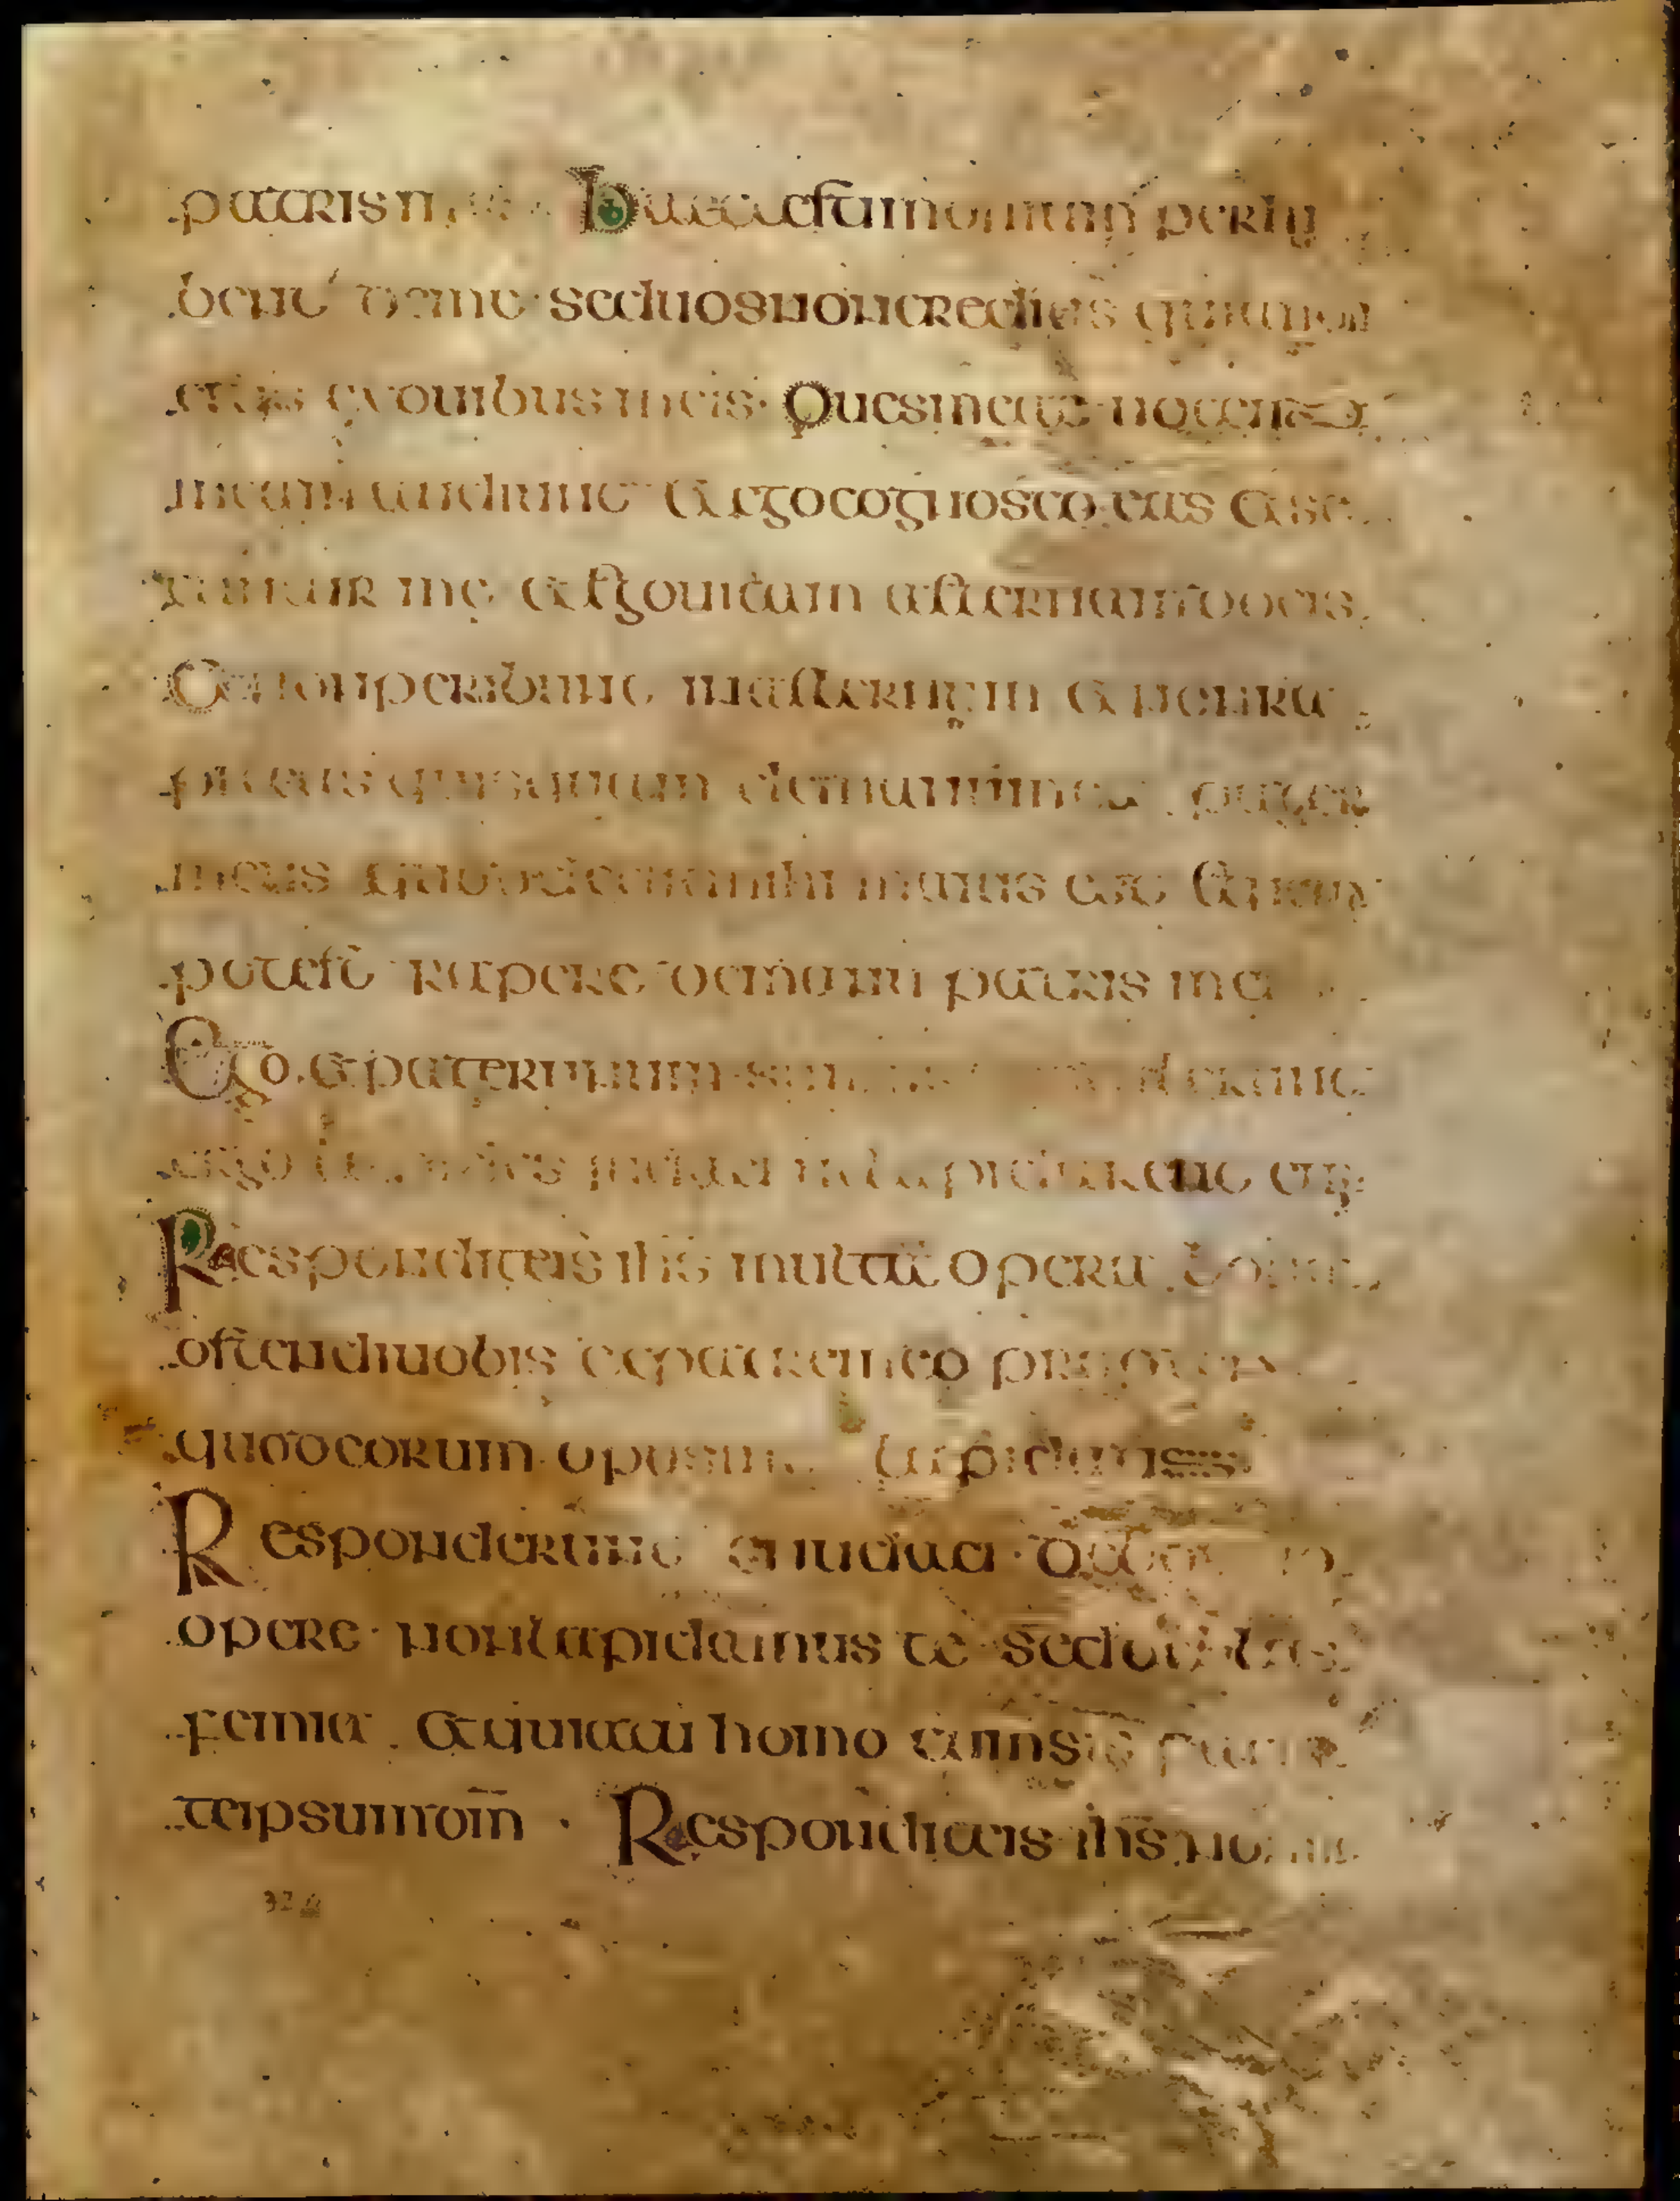 patris mei Haec testimonium perhi
bent de me sed uos non creditis quia non
estis ex ouibus meis Oues meae uocem
meam audiunt et ego cognosco eas et se
cuntur me et ego uitam aeternam do eis
Et non peribunt in aeternum et non ra
piet eas quisquam de manu mea pater
meus quod dedit mihi maius est et nemo
potest rapere de manu patris mei
Ego et pater unum sumus
ergo lapides iudaei ut lapidarent eum
Respondit eis ihs multa opera bona
ostendi uobis ex patre meo propter
quod eorum opus me lapidatis
Responderunt ei iudaei De bono
opere non lapidamus te sed de blas
femia et quia tu homo cum sis facis
te ipsum dm Respondit eis ihs nonne
32